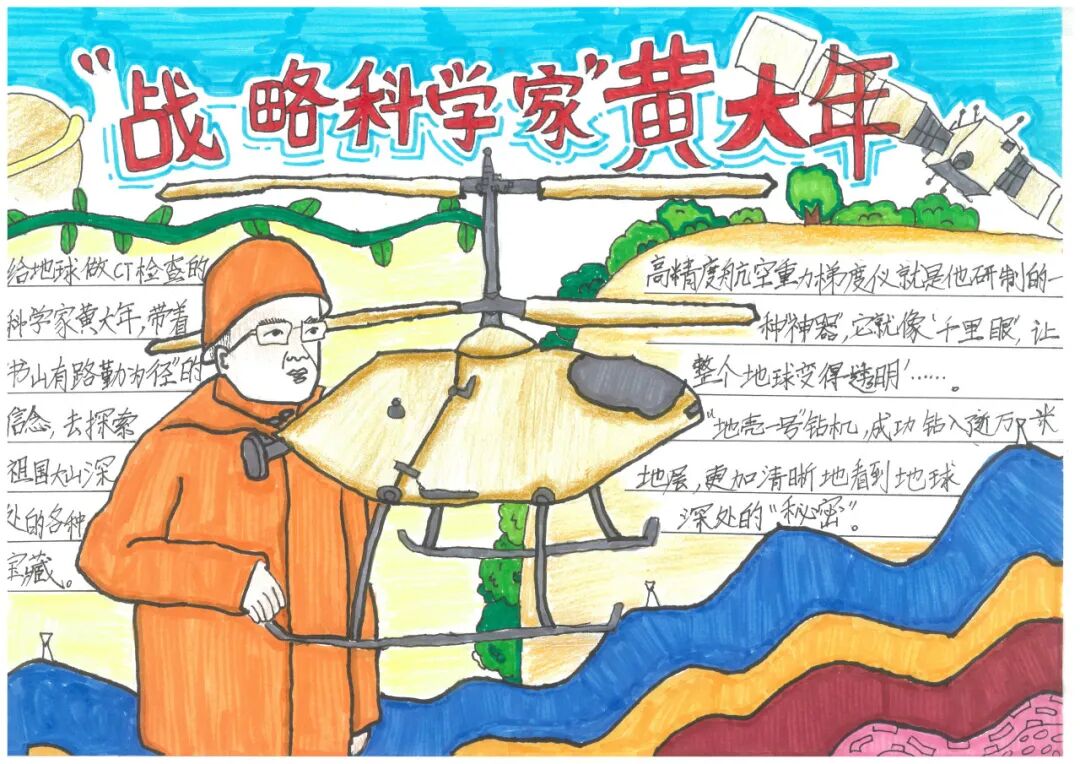 “战略科学家”黄大年
给地球做CT检查的
科学家黄大年,带着
书山有路勤为径”的
信念,去探索
祖国大山深
处的各种
宝藏。
高精度航空重力梯度仪就是他研制的一
种“神器”,它就像‘千里眼’,让
整个地球变得‘透明’……。
“地壳一号”钻机,成功钻入近万米
地层,更加清晰地看到地球
深处的“秘密”。